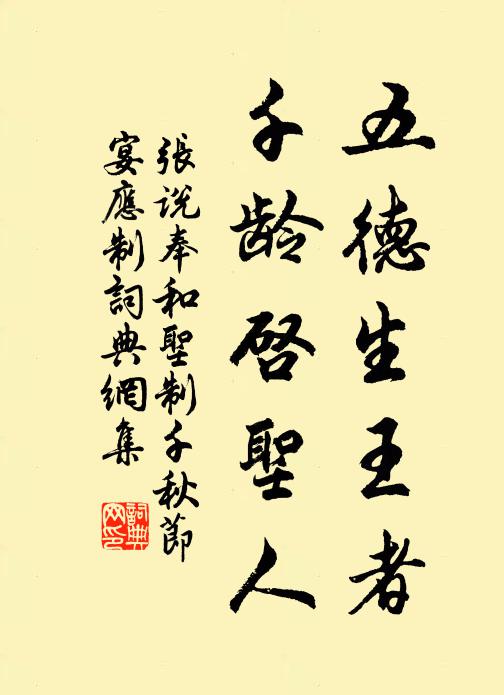 五德生王者
千龄启聖人
張説奉和聖制千秋節
宴應制詞典網集
詞典
网印